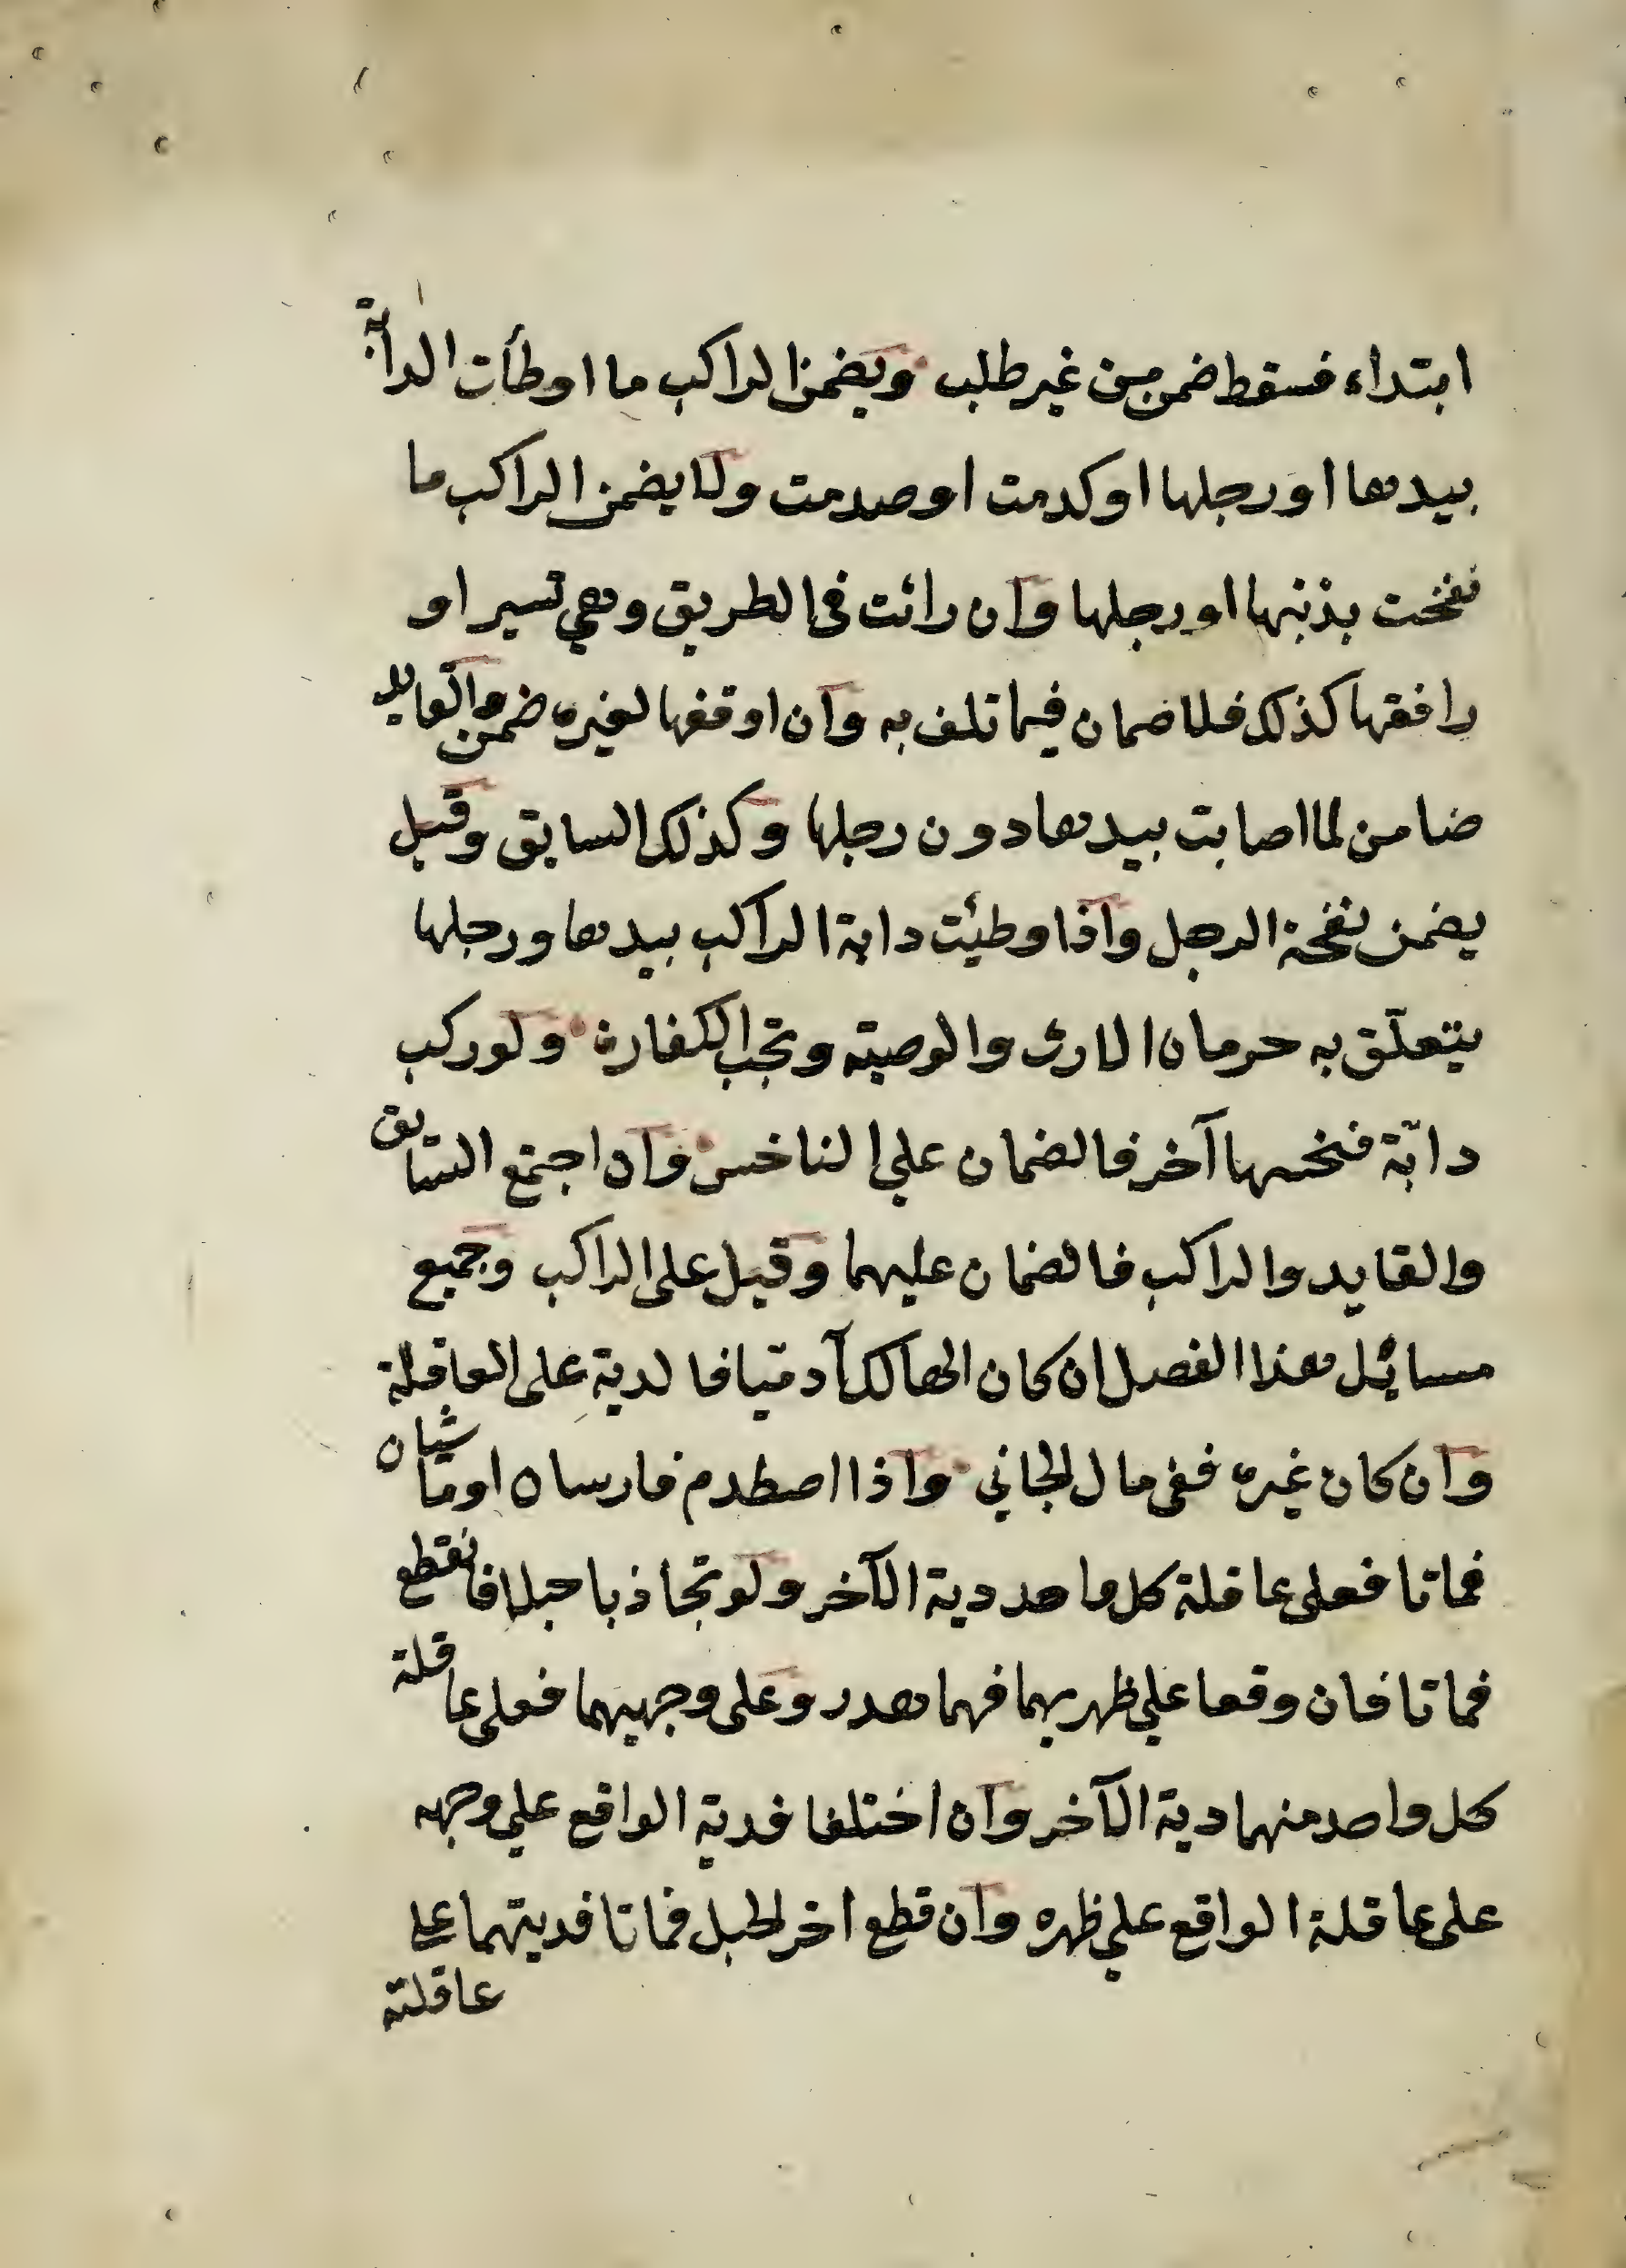 ابتداء فسقط ضمن من غير طلب ويضمن الراكب ما اوطأت الدابة
بيدها او رجلها او كدمت او صدمت ولا يضمن الراكب ما
نفخت بذنبها او رجلها وان راثت في الطريق وهي تسير او
رافقها كذلك فلا ضمان فيما تلف به وان اوقفها لغيره ضمن والقايد
ضامن لما اصابت بيدها دون رجلها وكذلك السابق وقيل
يضمن نفخة الرجل واذا وطيئت دابة الراكب بيدها ورجلها
يتعلّق به حرمان الارث والوصية وتجب الكفارة ولو ركب
دابّة فنخسها آخر فالضمان علي الناخس وان اجتمع السايق
والقايد والراكب فالضمان عليهما وقيل على الراكب وجميع
مسائل هذا الفصل ان كان الهالك آدميا فالدية على العاقلة
وان كان غيره ففي مال الجاني واذا اصطدم فارسان او ماشيان
فماتا فعلى عاقلة كل واحد دية الآخر ولو تجاذبا حبلا فانقطع
فماتا فان وقعا علي ظهريهما فهما هدر وعلى وجهيهما فعلى عاقلة
كل واحد منهما دية الآخر وان اختلفا فدية الواقع علي وجهه
على عاقلة الواقع علي ظهره وان قطع اخر الحبل فماتا فديتهما على
عاقلته